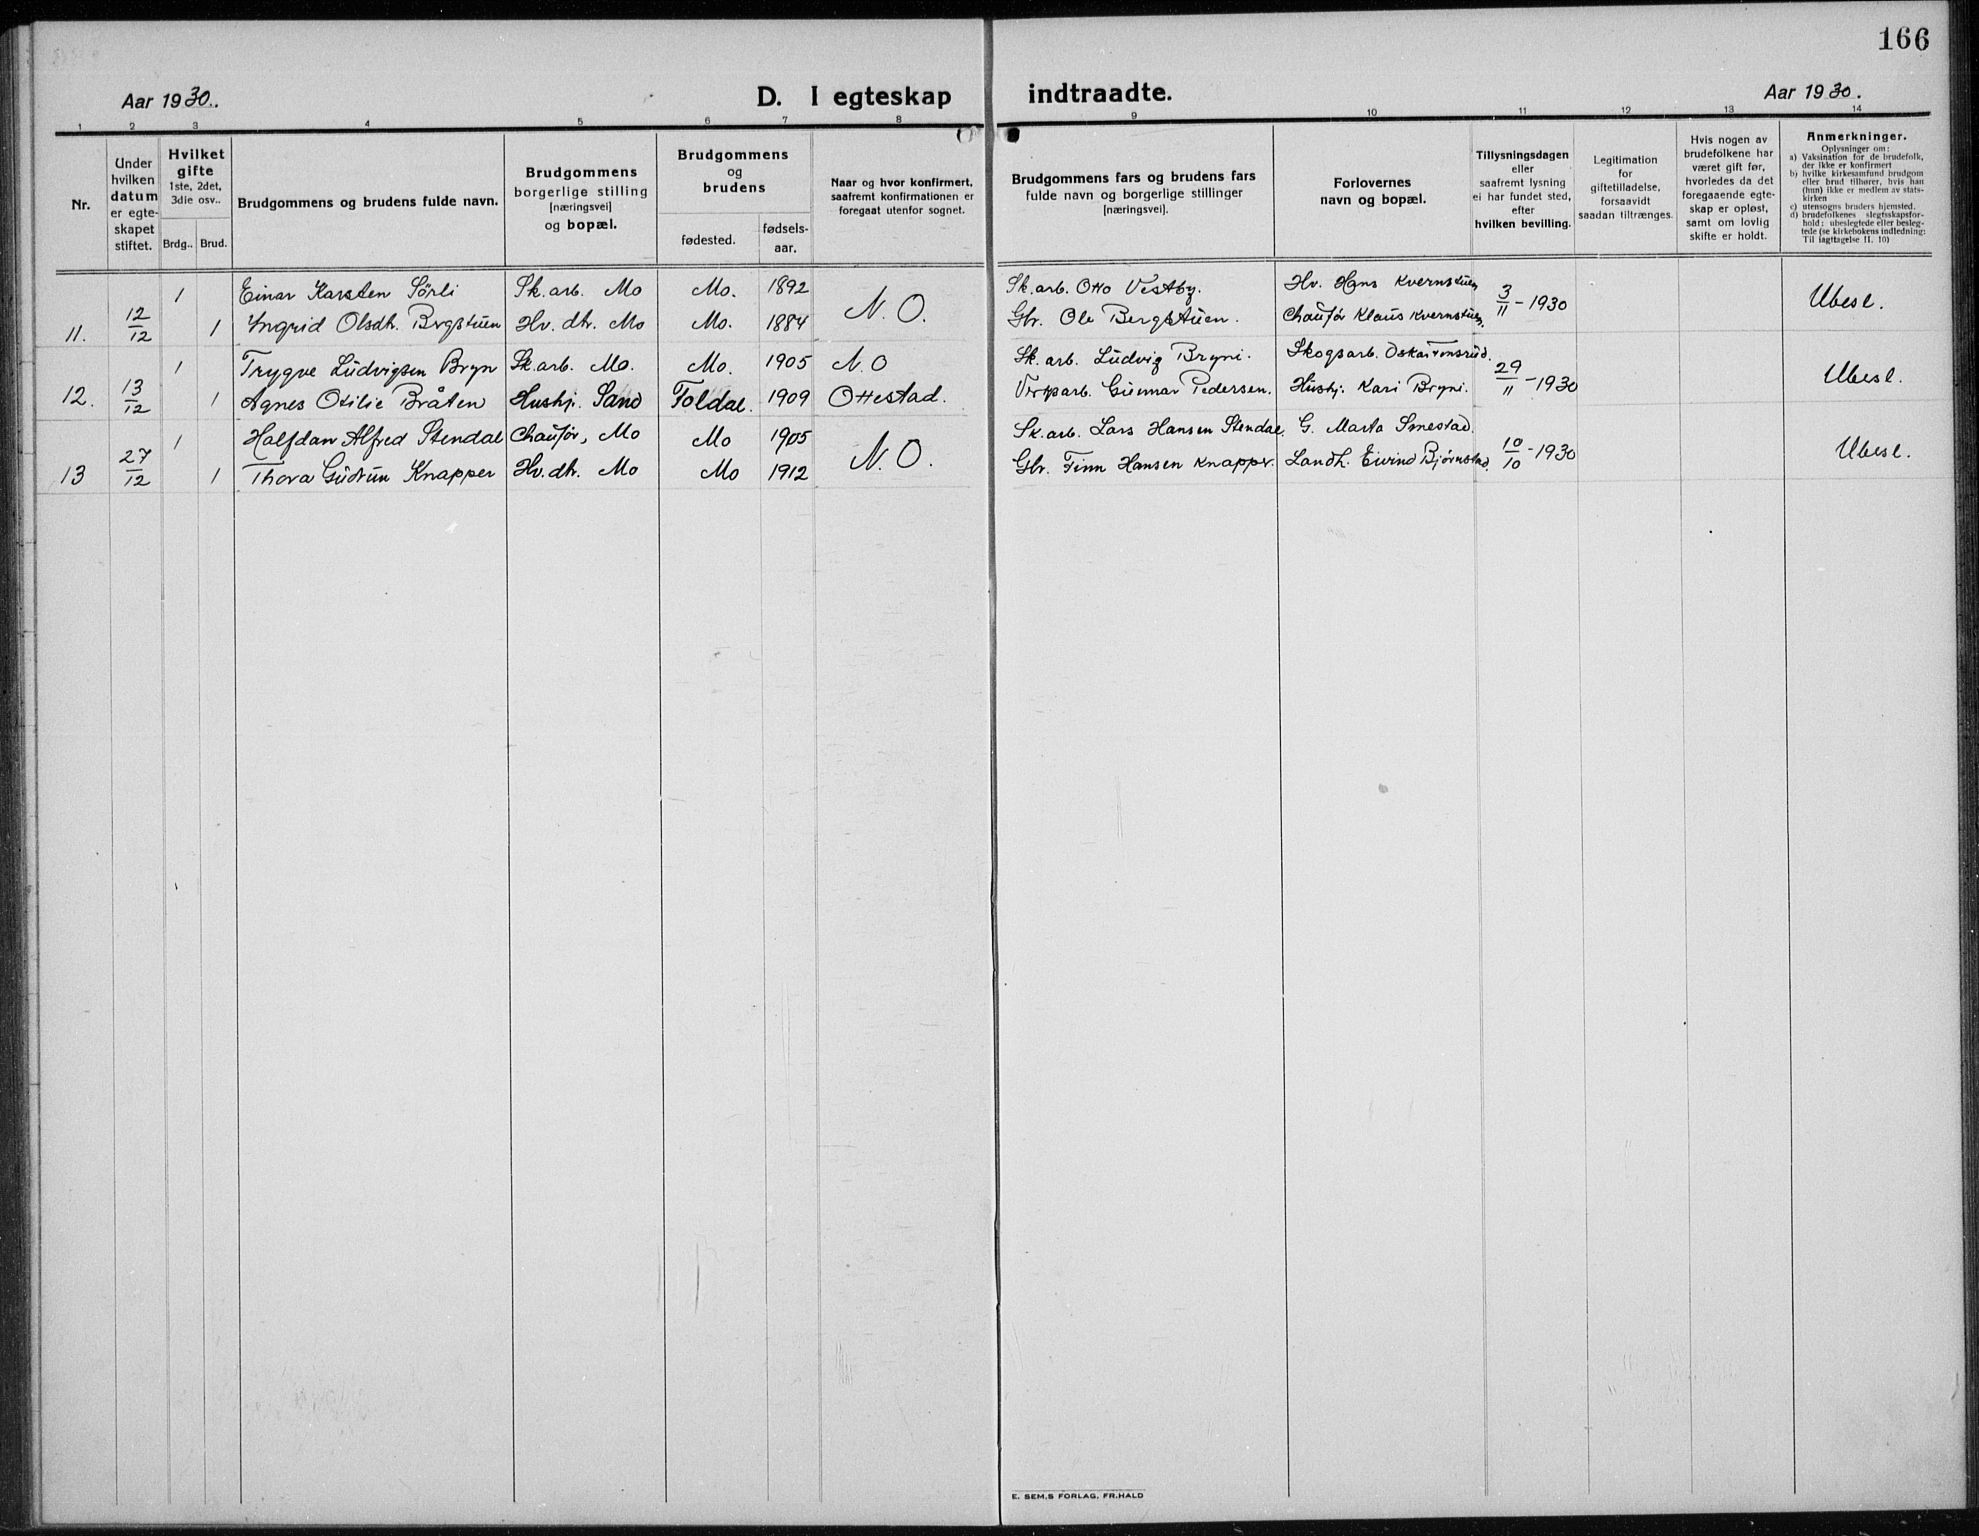 166
Aar 1930.. D. I egteskap indtraadte. Aar 1930.
1 2 3 4 5 6 7 8 9 10 11 12 13 14
Nr.
Under
hvilken
datum
er egte-
skapet
stiftet.
Hvilket
gifte
1ste, 2det,
3die osv..
Brdg.. Brud.
Brudgommens og brudens fulde navn.
Brudgommens
borgerlige stilling
[næringsvei]
og bopæl.
Brudgommens
og
brudens
fødested.
fødsels-
aar.
Naar og hvor konfirmert,
saafremt konfirmationen er
foregaat utenfor sognet.
Brudgommens fars og brudens fars
fulde navn og borgerlige stillinger
[næringsvei].
Forlovernes
navn og bopæl.
Tillysningsdagen
eller
saafremt lysning
ei har fundet sted,
efter
hvilken bevilling.
Legitimation
for
giftetilladelse,
forsaavidt
saadan tiltrænges.
Hvis nogen av
brudefolkene har
været gift før,
hvorledes da det
foregaaende egte-
skap er opløst,
samt om lovlig
skifte er holdt.
Anmerkninger.
Oplysninger om:
a) Vaksination for de brudefolk,
der ikke er konfirmert
b) hvilke kirkesamfund brudgom
eller brud tilhører, hvis han
(hun) ikke er medlem av stats-
kirken
c) utensogns bruders hjemsted.
d) brudefolkenes slegtsskapsfor-
hold: ubeslegtede eller besleg-
tede (se kirkebokens indledning:
Til iagttagelse II. 10)
1 Einar Karsten Sörli Sk. arb. Mo Mo. 1892 N. O. Sk. arb. Otto Vestby. Hv. Hans Kvernstuen 3/11 - 1930 Ubesl.
11. 12/12 1 Yngrid Olsdt. Bergstuen Hv. dtr. Mo Mo. 1884 Gbr. Ole Bergstuen. Chaufør Klaus Kvernstuen.
1 Trygve Ludvigsen Bryn Sk. arb. Mo. Mo. 1905 N. O Sk. arb. Ludvig Bryni. Skogsarb. Oskar 29/11 - 1930 Ubesl.
12. 13/12 1 Agnes Otilie Bråten Hushj. Sand Foldal. 1909 Ottestad. Gunnar Pedersen. Hushj. Kari Bryni.
1 Halfdan Alfred Stendal Chaufør, Mo Mo 1905 N. O. Sk. arb. Lars Hansen Stendal. G. Marta Smestad. 10/10 - 1930 Ubesl.
13 27/12 1 Thora Gudrun Knapper Hv. dtr. Mo Mo 1912 Gbr. Finn Hansen Knapper. Landh. Eivind Bjørnstad.
E. SEM.S FORLAG, FR.HALD